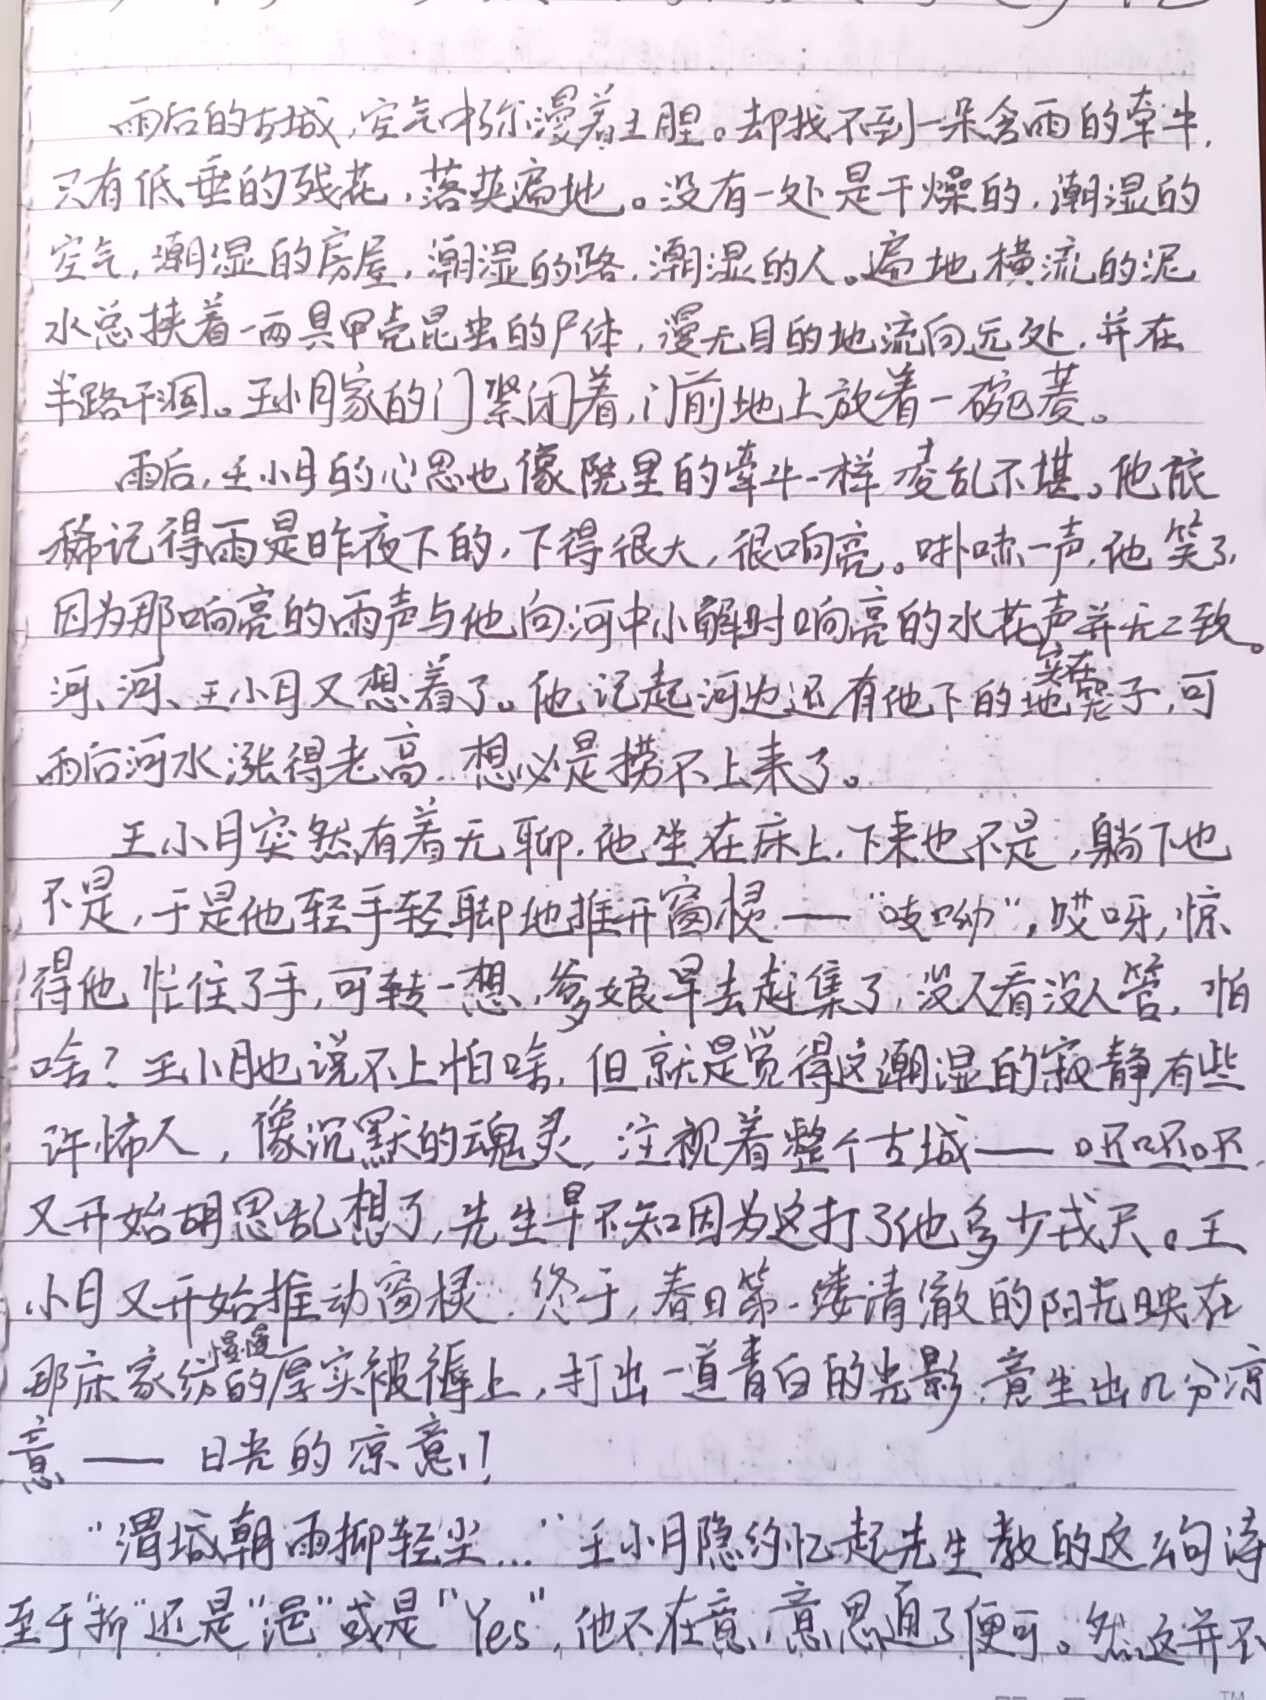 雨后的古城,空气中弥漫着土腥。却找不到一朵含雨的牵牛,
只有低垂的残花,落英遍地。没有一处是干燥的,潮湿的
空气,潮湿的房屋,潮湿的路,潮湿的人。遍地横流的泥
水总挟着一两具甲壳昆虫的尸体,漫无目的地流向远处,并在
半路干涸。王小月家的门紧闭着,门前地上放着一碗菱。
雨后,王小月的心思也像院里的牵牛一样凌乱不堪。他依
稀记得雨是昨夜下的,下得很大,很响亮。噗哧一声,他笑了,
因为那响亮的雨声与他向河中小解时响亮的水花声并无二致。
河、河、王小月又想着了。他记起河边还有他下的地笼子,可
实在
雨后河水涨得老高,想必是捞不上来了。
王小月突然有着无聊,他坐在床上,下来也不是,躺下也
不是,于是他轻手轻脚地推开窗棂——“吱呦”,哎呀,惊
得他忙住了手,可转一想,爹娘早去赶集了,没人看没人管,怕
啥?王小月也说不上怕啥,但就是觉得这潮湿的寂静有些
许怖人,像沉默的魂灵,注视着整个古城——呸呸呸,
又开始胡思乱想了,先生早不知因为这打了他多少戒尺。王
小月又开始推动窗棂,终于,春日第一缕清澈的阳光映在
慢慢
那床家纺的厚实被褥上,打出一道青白的光影,竟生出几分凉
意——日光的凉意!
“渭城朝雨抑轻尘…”王小月隐约忆起先生教的这么句诗
至于“抑”还是“浥”或是“Yes”,他不在意,意思通了便可。然这并不
TM